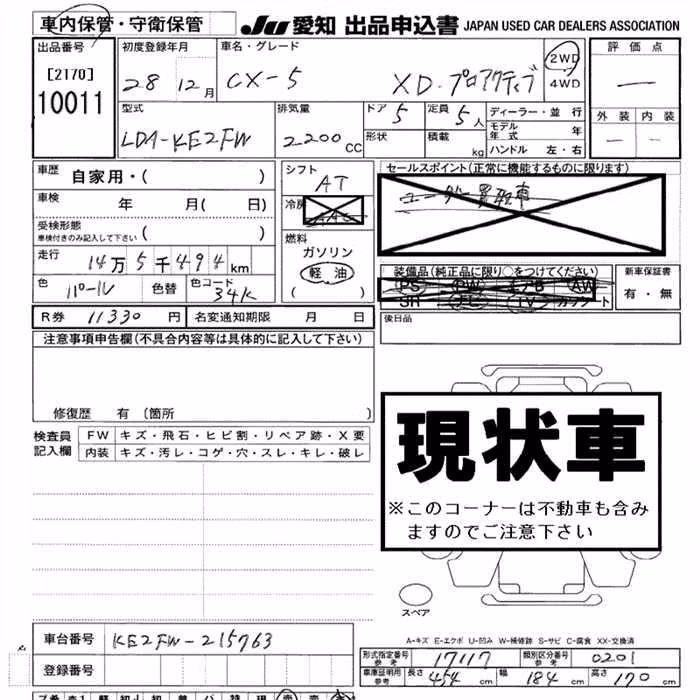 車内保管・守衛保管
JU 愛知 出品申込書 JAPAN USED CAR DEALERS ASSOCIATION
出品番号
[2170]
10011
初度登録年月
28 12月
車名・グレード
CX-5 XD・プロアクティブ
2WD
4WD
評価点
—
外装 内装
— —
型式
LDA-KE2FW
排気量
2200CC
ドア 5
形状
定員 5人
積載 kg
ディーラー・並行
モデル年式 年
ハンドル 左・右
車歴
自家用・( )
車検 年 月( 日)
受検形態
車検付きのみ記入して下さい ( )
走行
14万5千494km
色
パール
色替
色コード
34K
シフト
AT
冷房
AAC
燃料
ガソリン
軽油
( )
セールスポイント(正常に機能するものに限ります)
ユーザー買取車
装備品(純正品に限り○をつけてください)
PS PW エアB AW
SR ナビ TV カワシート
新車保証書
有・無
R券 11330円
名変通知期限 月 日
後日品
注意事項申告欄(不具合内容等は具体的に記入して下さい)
修復歴 有 〔箇所 〕
検査員記入欄
FW キズ・飛石・ヒビ割・リペア跡・X要
内装 キズ・汚レ・コゲ・穴・スレ・キレ・破レ
現状車
※このコーナーは不動車も含み
ますのでご注意下さい
スペア
A-キズ E-エクボ U-凹み W-補修跡 S-サビ C-腐食 XX-交換済
車台番号
KE2FW-215763
登録番号
形式指定番号
参考
17117
類別区分番号
参考
0201
車庫証明用
参考
長さ 454cm
幅 184cm
高さ 170cm